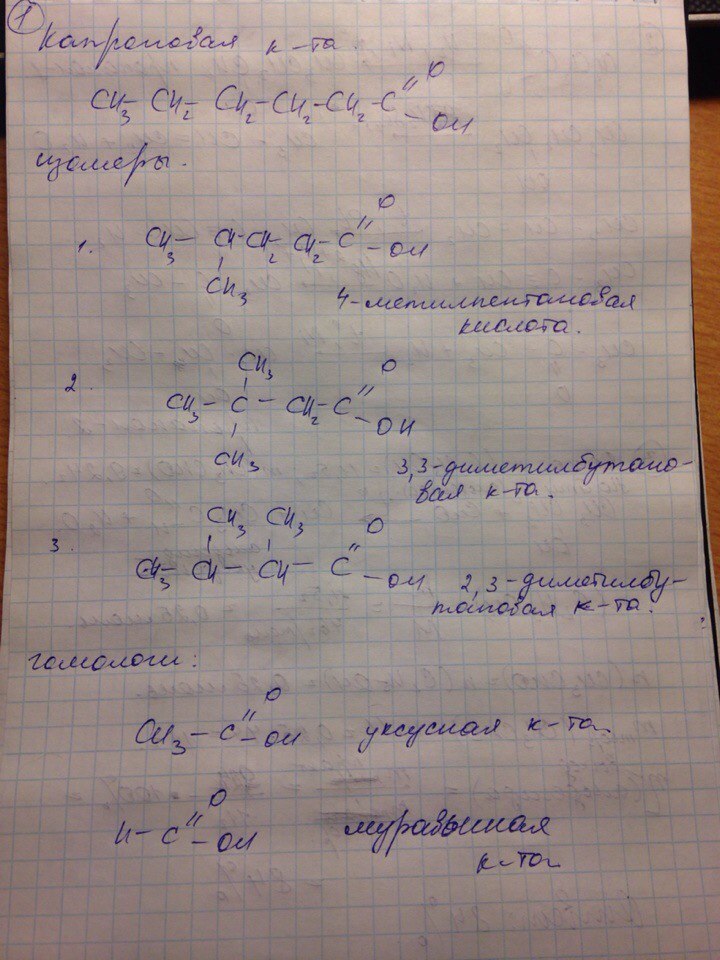 1
Капроновая к-та.
CH3 - CH2 - CH2 - CH2 - CH2 - C = O
- OH
изомеры.
1. CH3 - CH - CH2 - CH2 - C = O
- OH
CH3
4-метилпентановая
кислота.
CH3
2. CH3 - C - CH2 - C = O
- OH
CH3
3,3-диметилбутано-
вая к-та.
CH3 CH3
3. CH3 - CH - CH - C = O
- OH
2,3-диметилбу-
тановая к-та.
гомологи:
CH3 - C = O
- OH уксусная к-та.
H - C = O
- OH муравьиная
к-та.